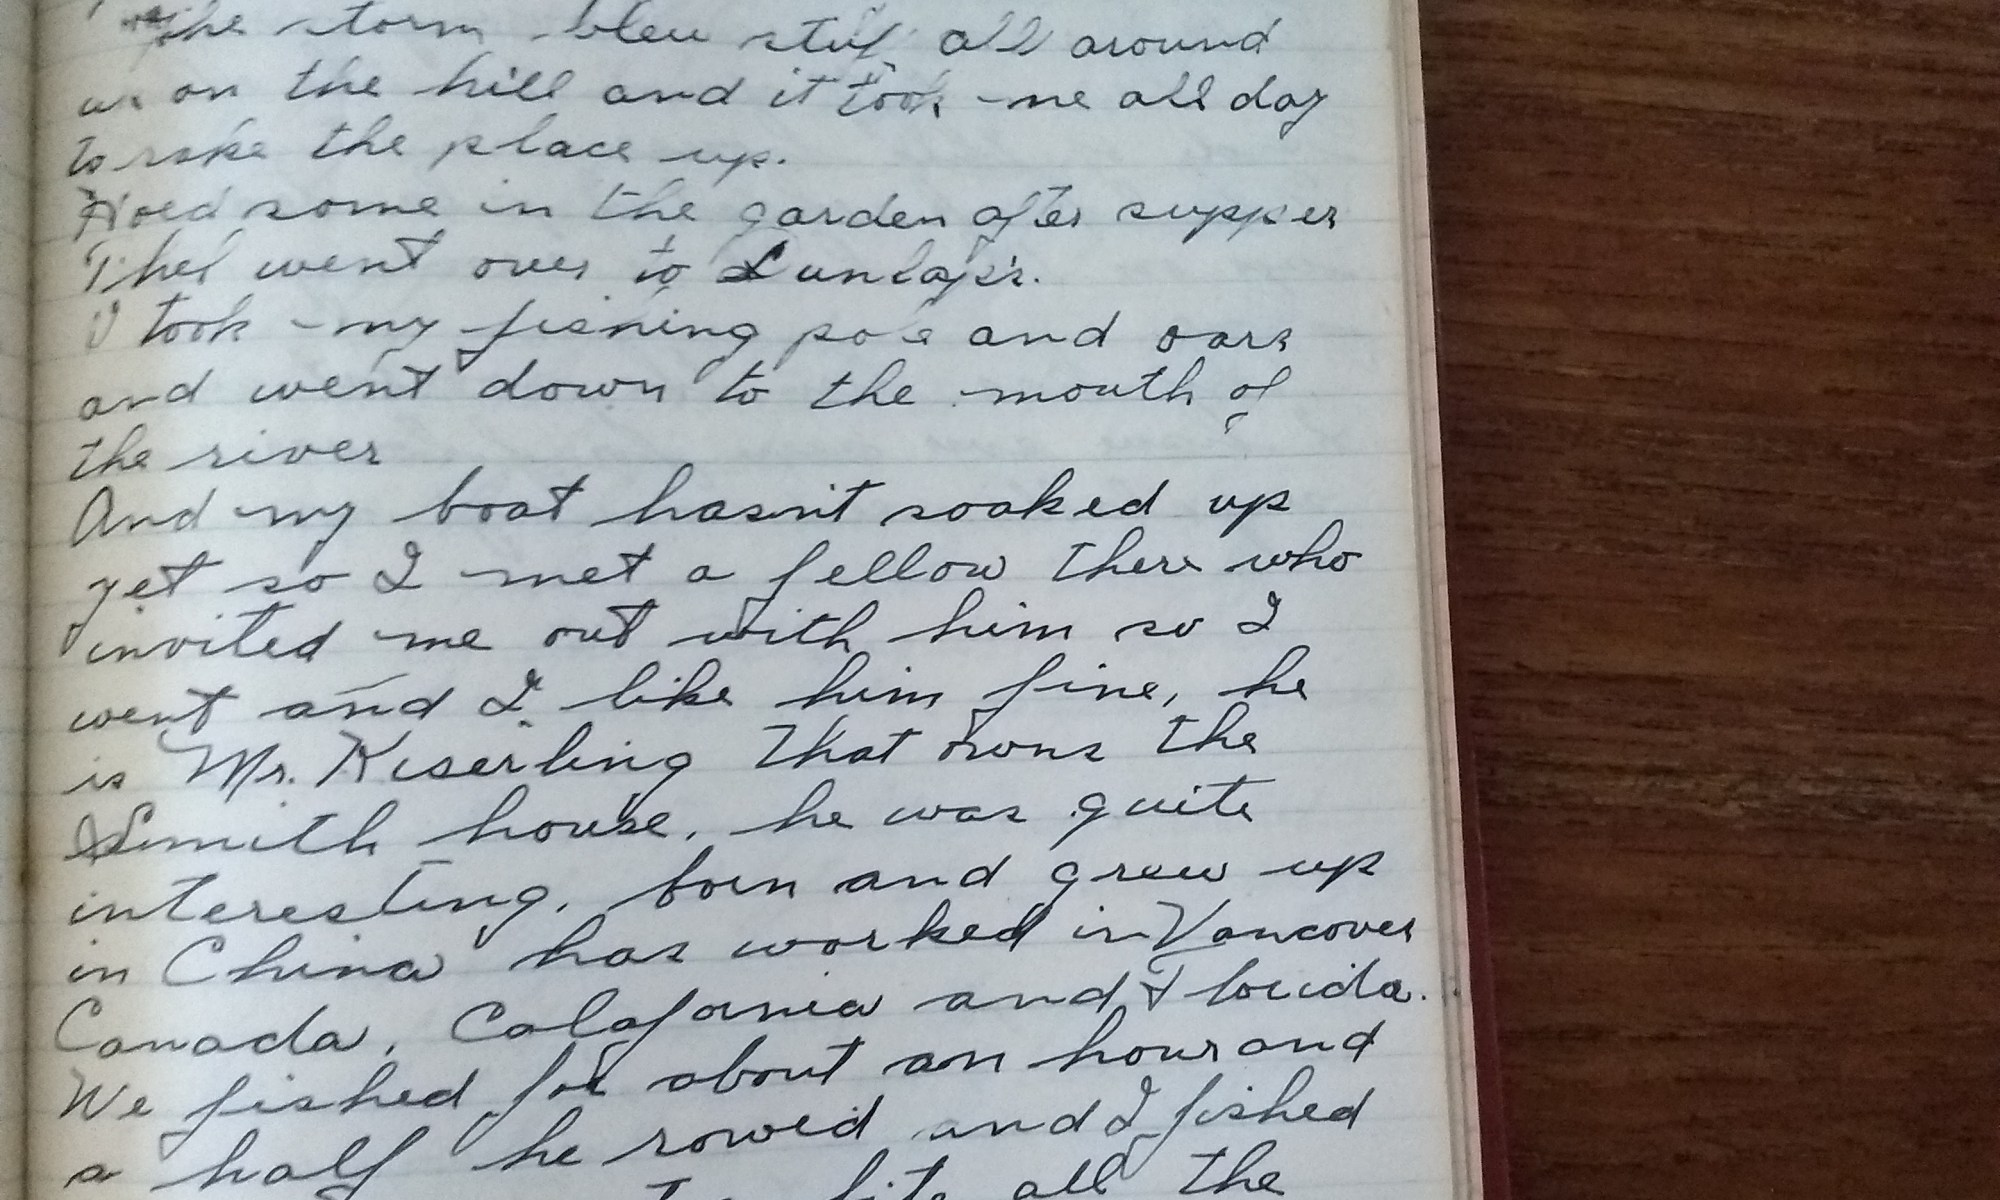 The storm blew stuf all around
us on the hill and it took me all day
to rake the place up.
Hoed some in the garden after supper
Then went over to Dunlap's.
I took my fishing pole and oars
and went down to the mouth of
the river
And my boat hasn't soaked up
yet so I met a fellow there who
invited me out with him so I
went and I like him fine, he
is Mr. Kiserling that owns the
Smith house, he was quite
interesting, born and grew up
in China has worked in Vancover
Canada, Calafornia and Florida.
We fished for about an hour and
a half he rowed and I fished
all the